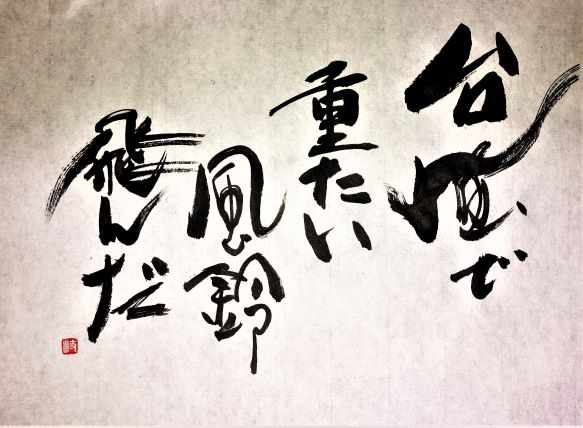 台風で
重たい
風鈴
飛んだ